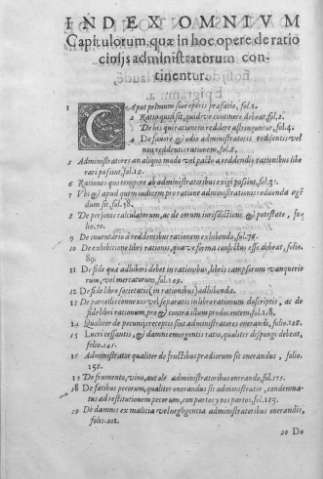 INDEX OMNIVM
Capitulorum, quæ in hoc opere de ratio
ciniis administratorum con-
tinentur.
1 Caput primum siue operis præfatio, fol.1.
2 Ratio quid sit, quid've continere debeat, fol.2.
3 De his qui rationem reddere astringuntur, fol.4.
4 De fauore & odio administratoris reddentis vel
non reddentis rationem, fol.8.
5 Administratores an aliquo modo vel pacto a reddendis rationibus libe
rari possint, fol.22.
6 Rationes quo tempore ab administratoribus exigi possint, fol.31.
7 Vbi & apud quem iudicem pro ratione administrationis reddenda agen
dum sit, fol.38.
8 De personis calculatorum, ac de eorum iurisdictione, & potestate, fo
lio.
9 De inuentario à reddentibus rationem exhibendo, fol.76.
10 De exhibitione libri rationis, quave forma confectus esse debeat, folio.
89.
11 De fide quæ adhiberi debet in rationibus, libris campsorum
rum, vel mercatorum, fol.109.
12 De fide libro societatis (in rationibus) adhibenda.
13 De partitis
fide libri rationum pro & contra illum producentem, fol.
14 Qualiter de pecunijs receptis sint administratores onerandi, folio.128.
15 Lucri cessantis, & damni emergentis ratio, qualiter dispungi debeat,
folio.141.
16 Administrator qualiter de fructibus prædiorum sit onerandus, folio.
150.
17 De frumento, vino, aut ole administratoribus onerando, fol.
18 De fœtibus pecorum, qualiter onerandus sit administrator, condemna-
tus ad restitutionem pecorum, cum partos y pos partos, fol.
20 De damnis ex malitia vel negligentia administratoribus onerandis,
folio.
20 De